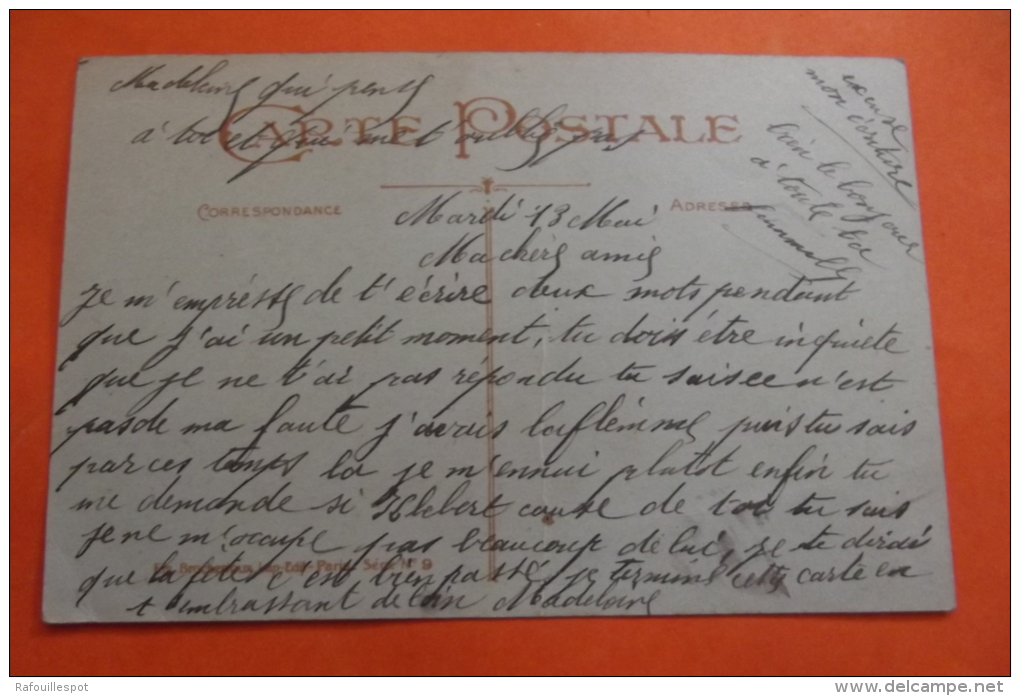 Madeleine qui pense
à toi et qui ne t'oublie pas
CARTE POSTALE
excuse
mon écriture
bien le bonjour
à toute ta
famille
CORRESPONDANCE
ADRESSE
Mardi 13 Mai
Ma chère amie
Je m'empresse de t'écrire deux mots pendant
que j'ai un petit moment, tu dois être inquiete
que je ne t'ai pas répondu tu sais ce n'est
pas de ma faute j'avais la flemme puis tu sais
par ces temps la je m'ennui plutôt enfin tu
me demande si Hebert cause de toi tu sais
je ne m'occupe pas beaucoup de lui, je te dirai
que la fête c'est bien passé je termine cette carte en
t'embrassant de loin Madeleine
Imp.-Edit. Paris Série N° 9
Rafouillespot
www.delcampe.net